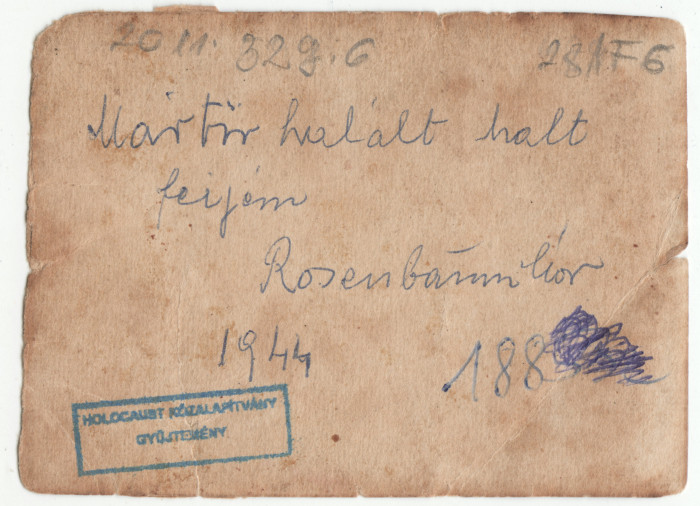 2011.329:6 28/F6
Mártír halált halt
feijém
Rosenbaum
1944 188
HOLOCAUST KÖZALAPÍTVÁNY
GYŰJTEMÉNY